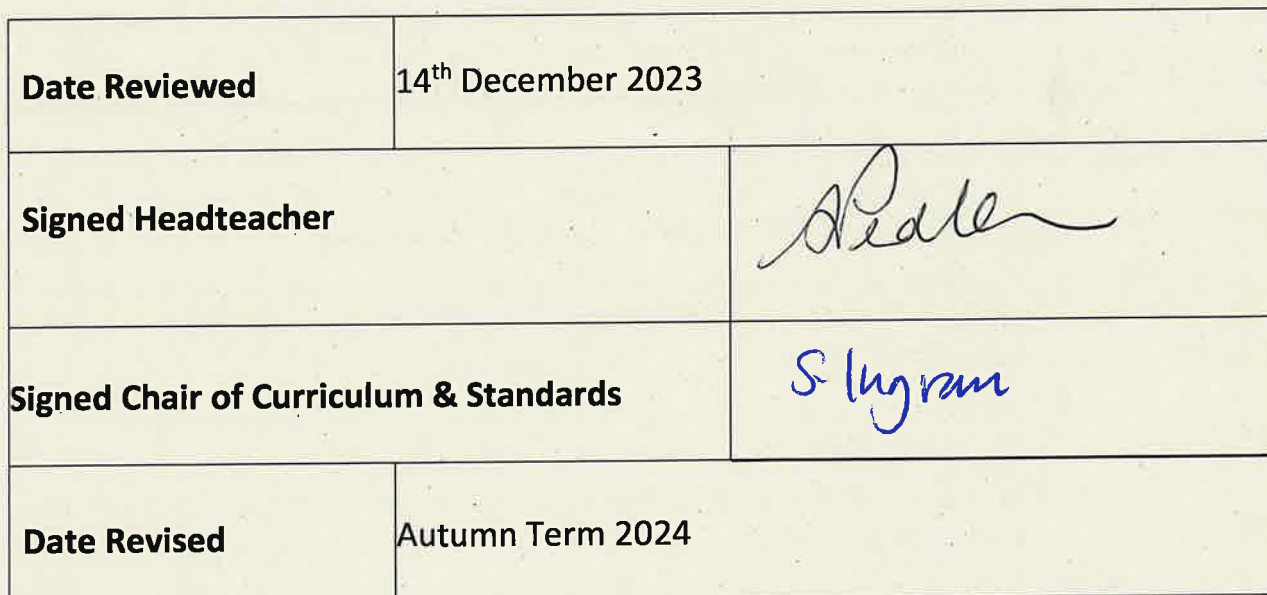 Date Reviewed 14th December 2023
Signed Headteacher
Signed Chair of Curriculum & Standards S. Ingram
Date Revised Autumn Term 2024